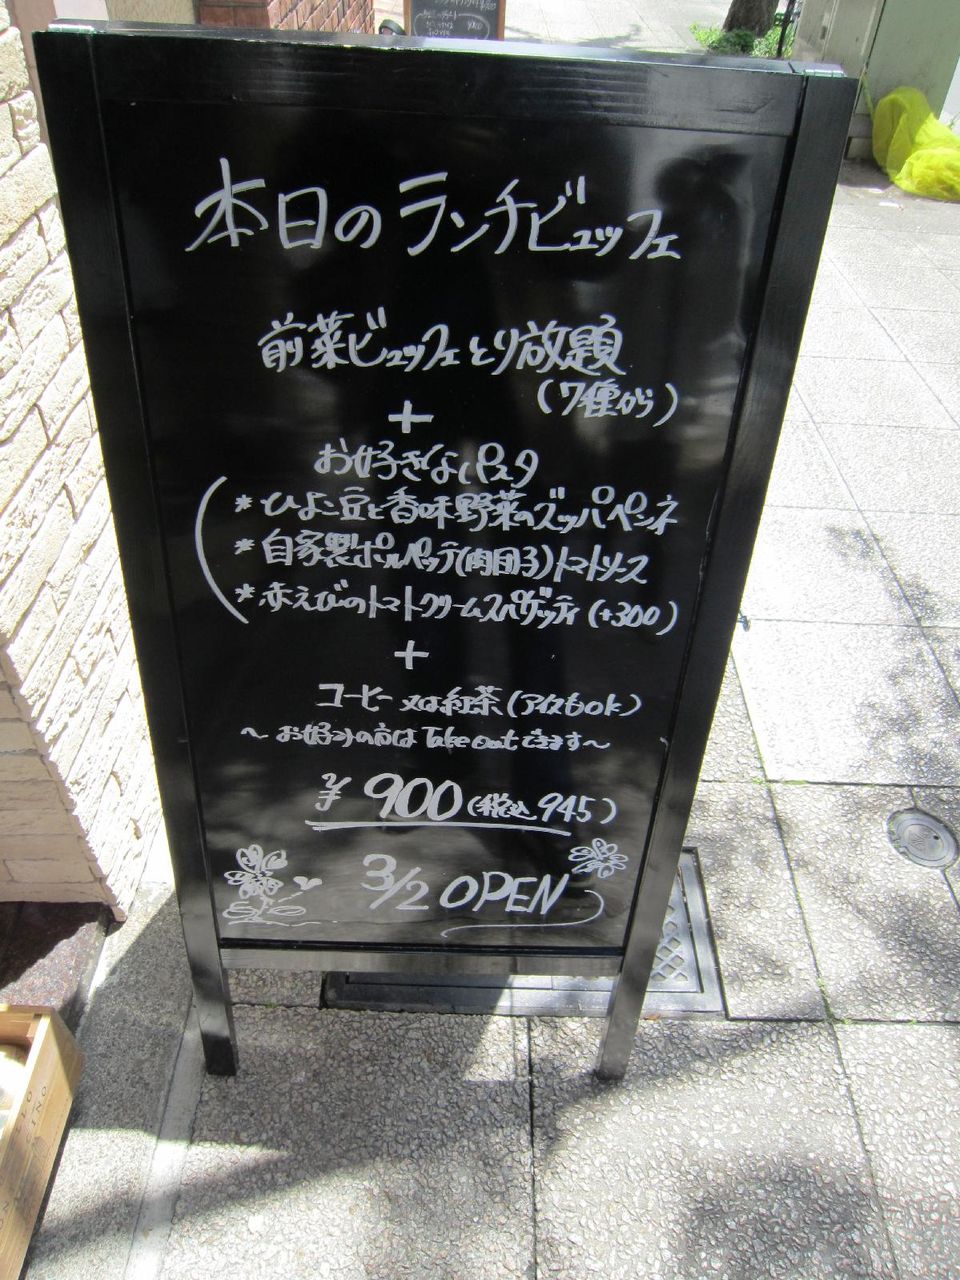 本日のランチビュッフェ
前菜ビュッフェとり放題
(7種から)
+
お好きなパスタ
*ひよこ豆と香味野菜のズッパペンネ
*自家製ポルペッテ(肉団子)トマトソース
*赤えびのトマトクリームスパゲッティ(+300)
+
コーヒー又は紅茶(アイスもok)
~お好みの方は Take outできます~
¥900(税込945)
3/2 OPEN